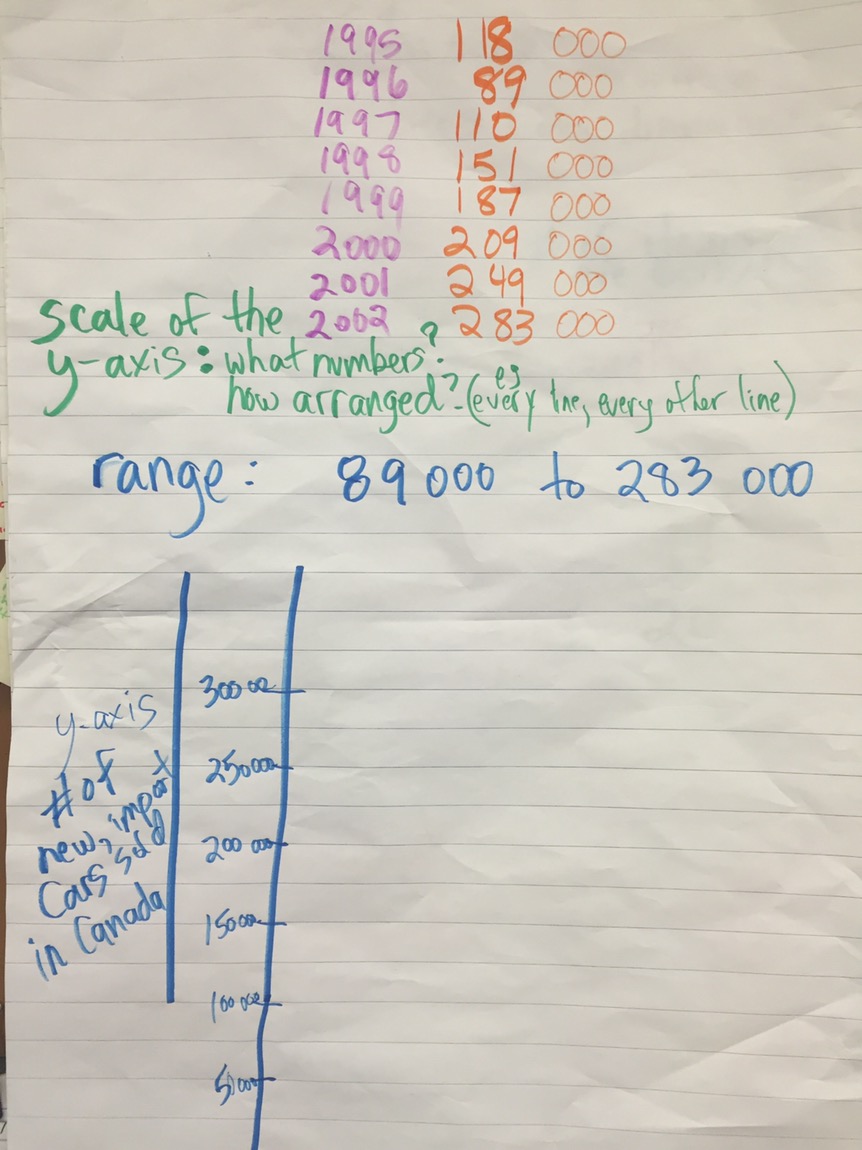 1995 118 000
1996 89 000
1997 110 000
1998 151 000
1999 187 000
2000 209 000
2001 249 000
2002 283 000
scale of the
y-axis: what numbers?
how arranged? (eg every line, every other line)
range: 89 000 to 283 000
y-axis
# of
new, import
Cars sold
in Canada
300 000
250 000
200 000
150 000
100 000
50 000